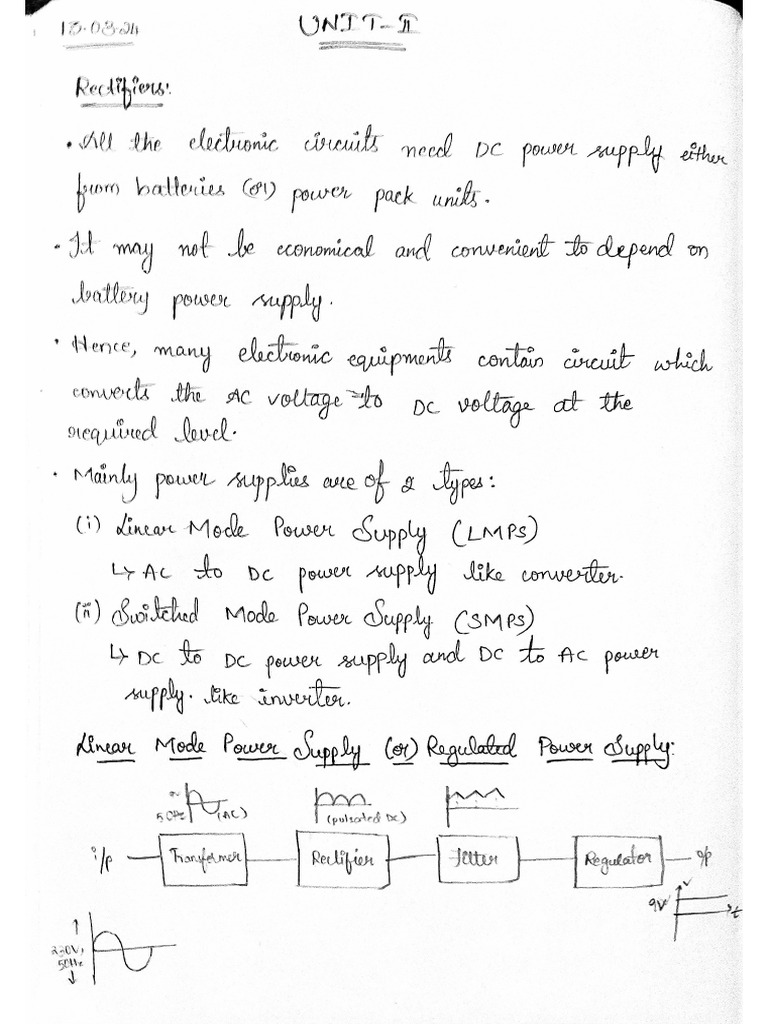 13.03.24
UNIT-II
Rectifiers:
• All the electronic circuits need DC power supply either
from batteries (or) power pack units.
• It may not be economical and convenient to depend on
battery power supply.
• Hence, many electronic equipments contain circuit which
converts the AC voltage to DC voltage at the
required level.
• Mainly power supplies are of 2 types:
(i) Linear Mode Power Supply (LMPS)
↳ AC to DC power supply like converter.
(ii) Switched Mode Power Supply (SMPS)
↳ DC to DC power supply and DC to AC power
supply. like inverter.
Linear Mode Power Supply (or) Regulated Power Supply:
50Hz (AC) (pulsated DC)
i/p Transformer Rectifier Filter Regulator o/p
9V V t
230V,
50Hz